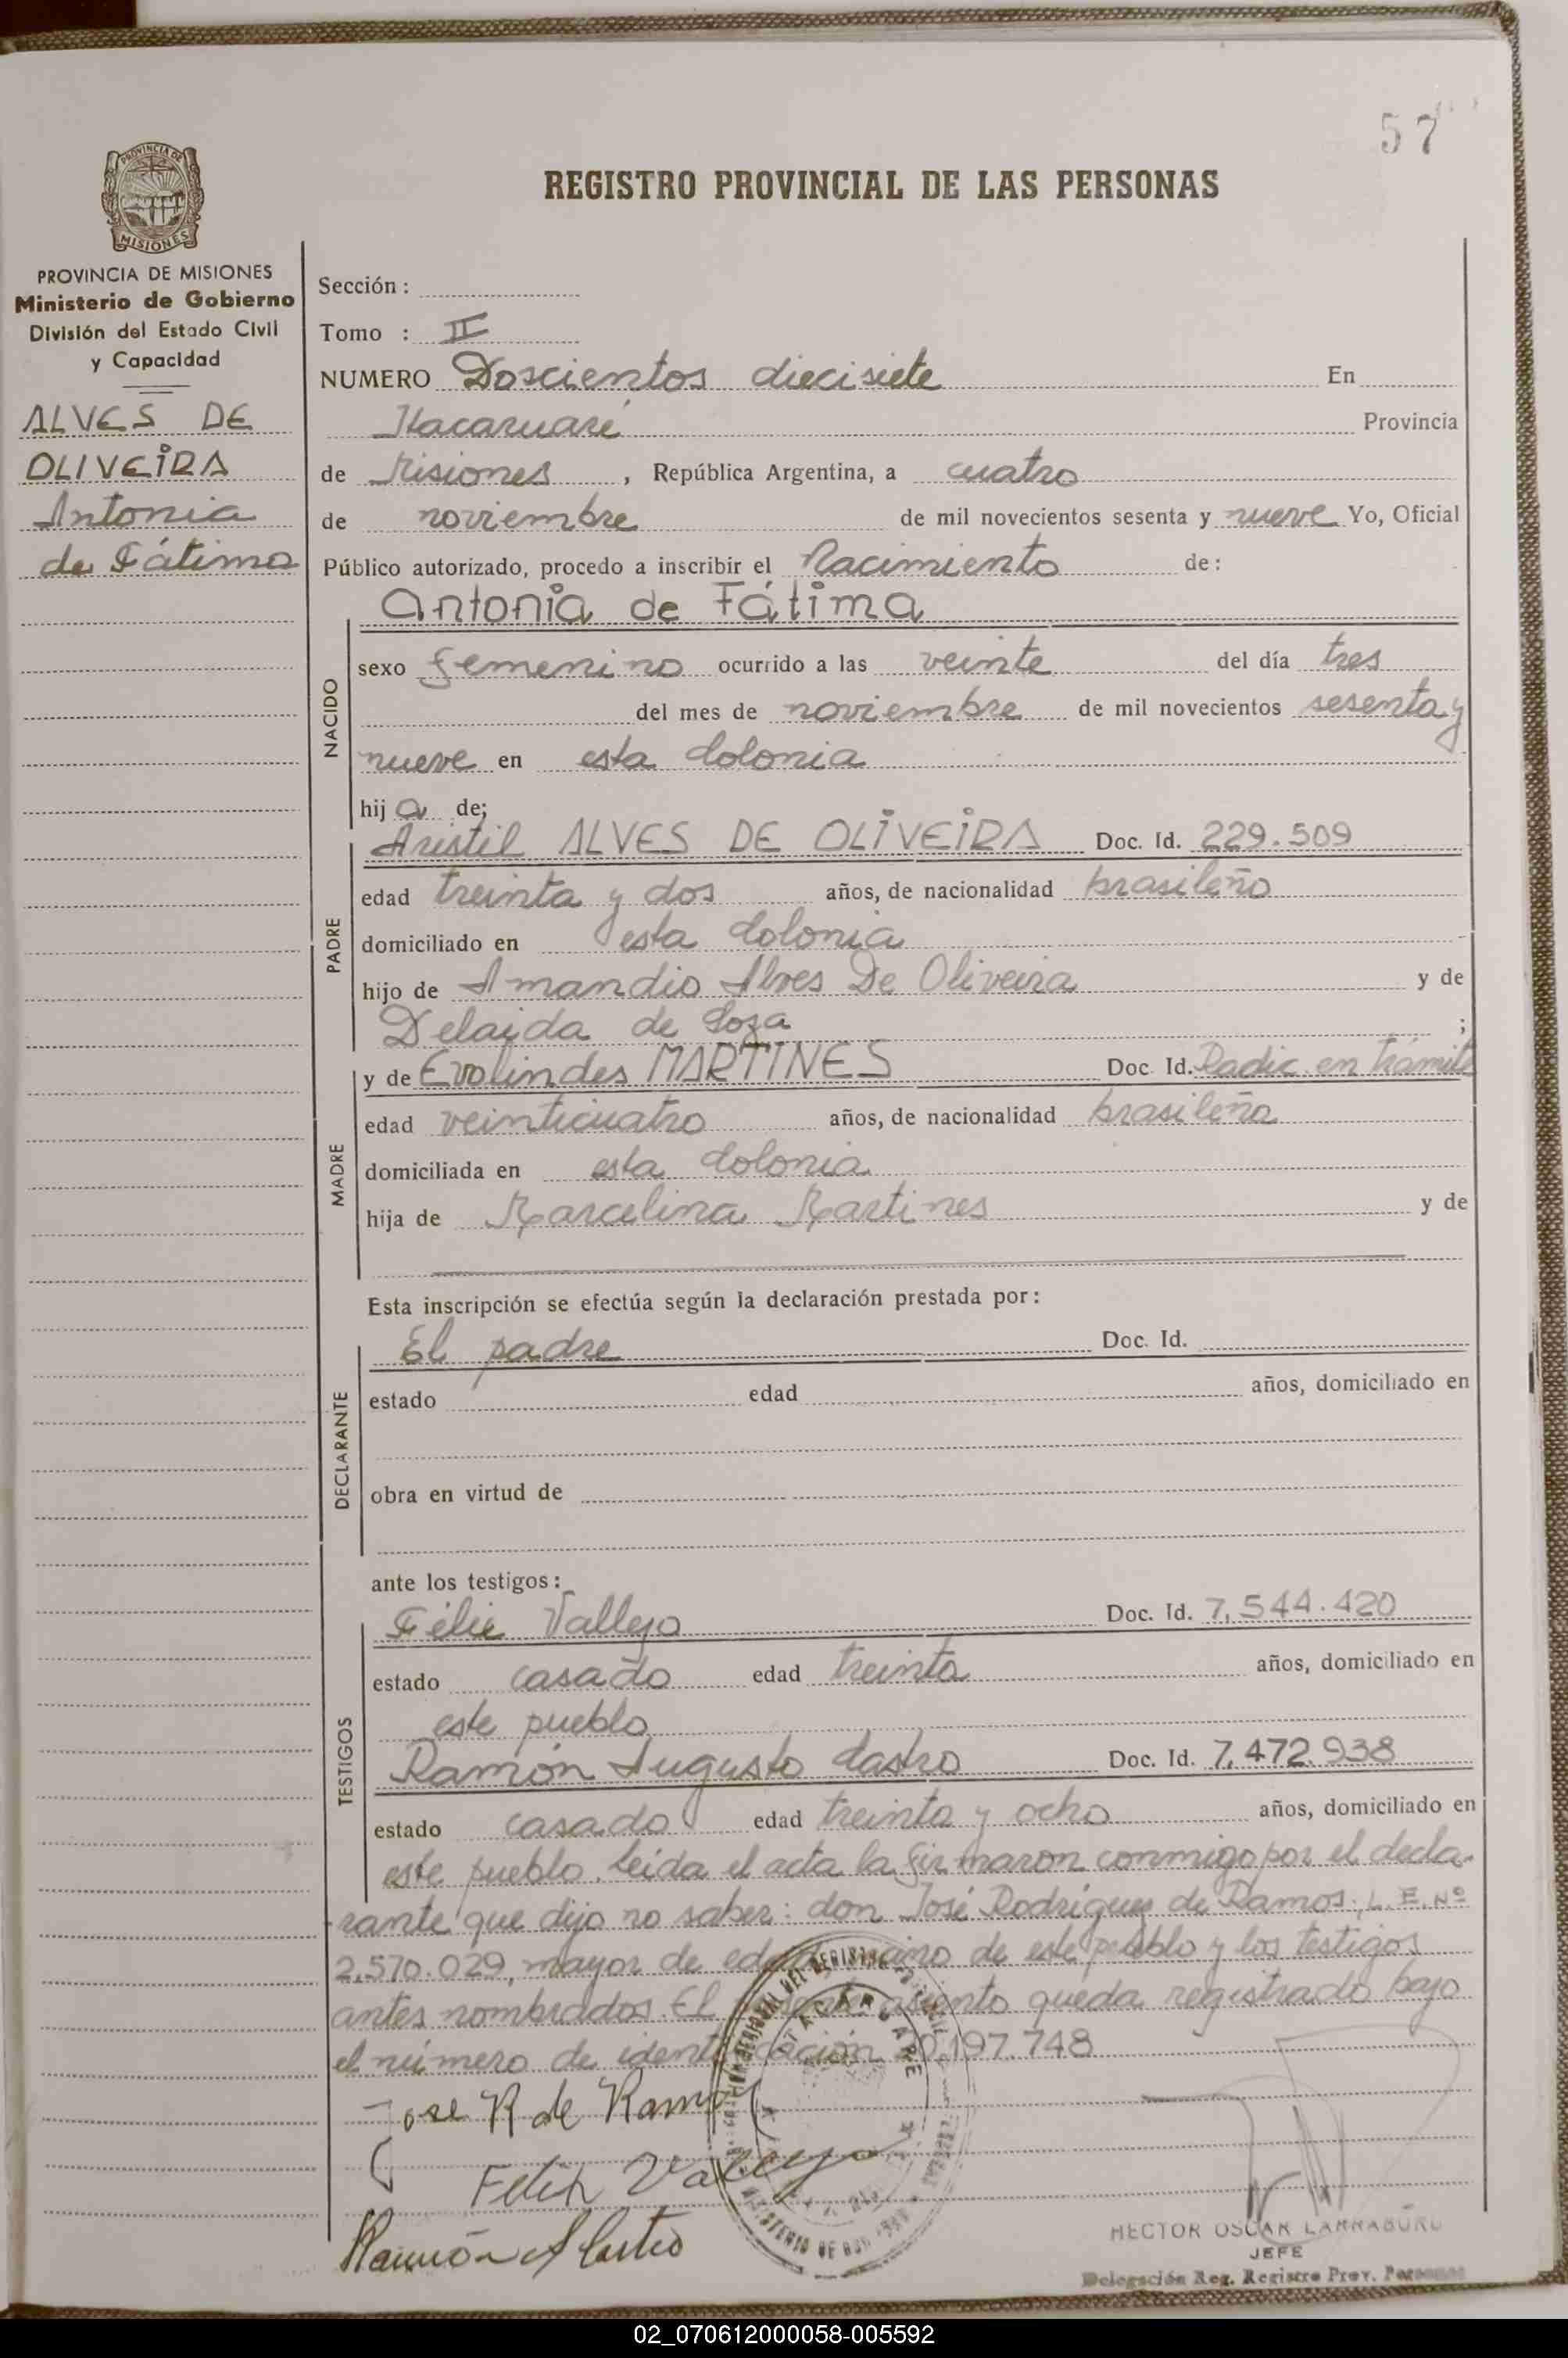 57
PROVINCIA DE
MISIONES
REGISTRO PROVINCIAL DE LAS PERSONAS
PROVINCIA DE MISIONES
Ministerio de Gobierno
División del Estado Civil
y Capacidad
ALVES DE
OLIVEIRA
Antonia
de Fátima
Sección :
Tomo : II
NUMERO Doscientos diecisiete En
Itacaruaré Provincia
de Misiones , República Argentina, a cuatro
de noviembre de mil novecientos sesenta y nueve Yo, Oficial
Público autorizado, procedo a inscribir el Nacimiento de:
NACIDO
Antonia de Fátima
sexo femenino ocurrido a las veinte del día tres
del mes de noviembre de mil novecientos sesenta y
nueve en esta Colonia
hij a de;
PADRE
Aristil ALVES DE OLIVEIRA Doc. Id. 229.509
edad treinta y dos años, de nacionalidad brasileño
domiciliado en esta Colonia
hijo de Amandio Alves De Oliveira y de
Delaida de Soza ;
MADRE
y de Evolindes MARTINES Doc. Id. Radic. en trámite
edad veinticuatro años, de nacionalidad brasileña
domiciliada en esta Colonia
hija de Marcelina Martines y de
Esta inscripción se efectúa según la declaración prestada por:
DECLARANTE
El padre Doc. Id.
estado edad años, domiciliado en
obra en virtud de
ante los testigos:
TESTIGOS
Félix Vallejo Doc. Id. 7.544.420
estado casado edad treinta años, domiciliado en
este pueblo
Ramón Augusto Castro Doc. Id. 7.472.938
estado casado edad treinta y ocho años, domiciliado en
este pueblo. Leída el acta la firmaron conmigo, por el decla-
rante que dijo no saber: don José Rodríguez de Ramos, L.E. Nº
2.570.029, mayor de edad, vecino de este pueblo y los testigos
antes nombrados. El presente asiento queda registrado bajo
el número de identificación 20.197.748
Jose R de Ramos
Felix Vallejo
Ramón A Castro
ITACARUARE
HECTOR OSCAR LARRABURU
JEFE
Delegación Reg. Registro Prov. Personas
02_070612000058-005592